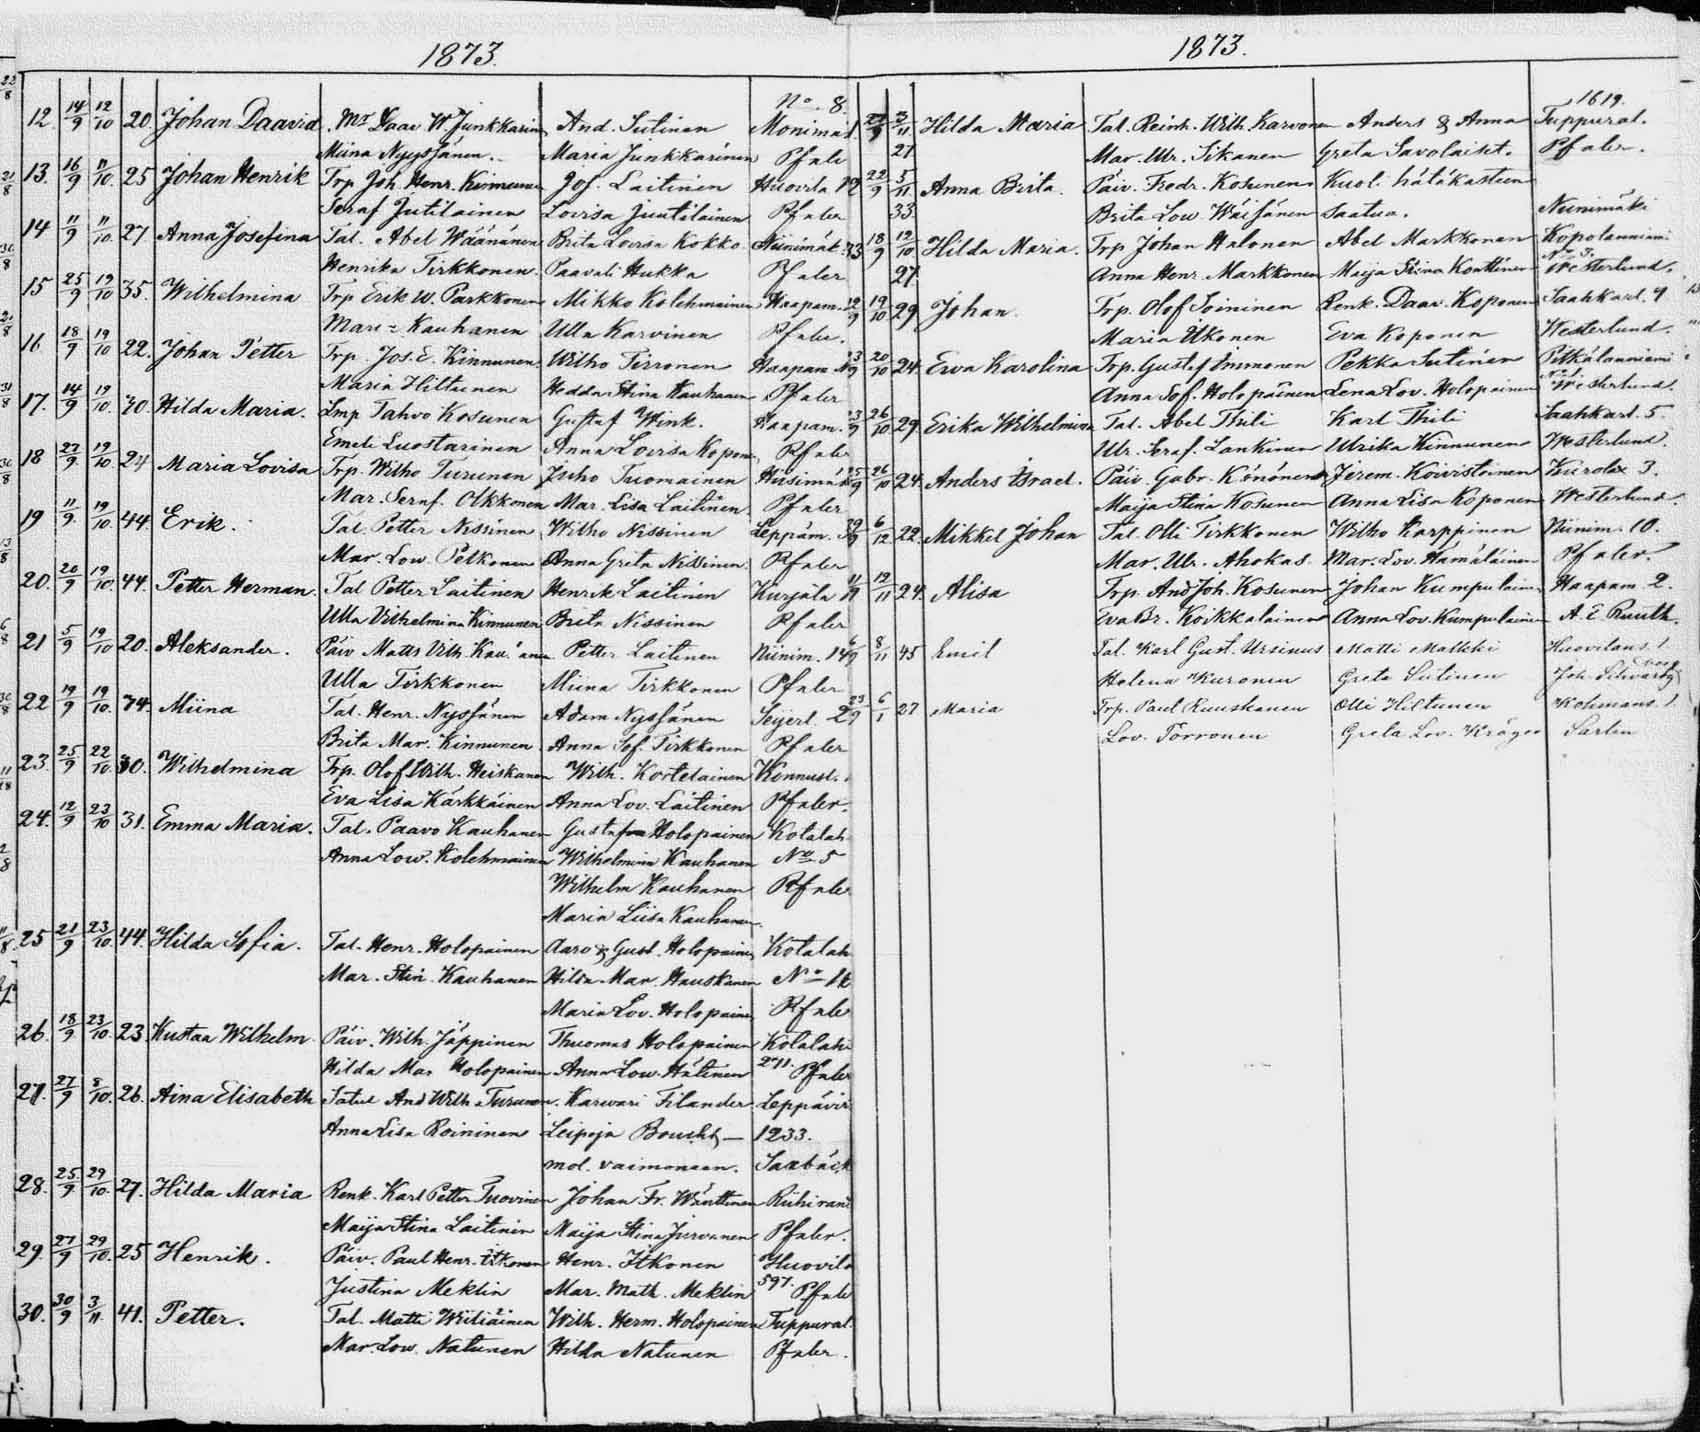 1873.
No. 8.
12 14/9 12/10 20. Johan Daavid Mr Daav. W. Junkkarin And. Sutinen Monimäk
Miina Nyyssänen. Maria Junkkarinen Pfaler
13. 16/9 11/10. 25 Johan Henrik Trp Joh. Henr. Kinnunen Jos. Laitinen Huovila 12
Seraf Jutilainen Lovisa Juutilainen Pfaler
14 11/9 11/10. 27 Anna Josefina Tal. Abel Väänänen Brita Lovisa Kokko Niinimäk.
Henrika Tirkkonen. Paavali Hukka Pfaler
15 25/9 19/10 35. Wilhelmina Trp Erik W. Parkkonen Mikko Kolehmainen Haapam.
Mari Kauhanen Ulla Karvinen Pfaler.
16 18/9 19/10 22. Johan Petter Trp. Jos. E. Kinnunen Wilho Tirronen Haapam
Maria Hiltunen Hedda Stina Kauhanen Pfaler
17. 14/9 19/10. 30 Hilda Maria. Lmp Tahvo Kosunen Gustaf Wink. Haapam.
Emeli Luostarinen Anna Lovisa Kopon. Pfaler
18 27/9 19/10 24 Maria Lovisa Trp. Wilho Turunen Juho Tuomainen
Mar. Seraf. Olkkonen Mar. Lisa Laitinen. Pfaler
19 11/9 19/10. 44. Erik. Tal. Petter Nissinen Wilho Nissinen Leppäm.
Mar. Low. Pelkonen Anna Greta Nissinen. Pfaler
20. 20/9 19/10. 44. Petter Herman. Tal Petter Laitinen Henrik Laitinen Kurjala
Ulla Vilhelmina Kinnunen Brita Nissinen Pfaler
21 5/9 19/10 20. Aleksander. Päiv Matts Vilh. Kauhanen Petter Laitinen Niinim. 14
Ulla Tirkkonen Miina Tirkkonen Pfaler
22 19/9 19/10. 34. Miina Tal. Henr. Nyssönen Adam Nyssönen Seijerl. 2
Brita Mar. Kinnunen Anna Sof. Tirkkonen Pfaler
23. 25/9 22/10. 30. Wilhelmina Trp. Olof Wilh. Heiskanen Wilh. Kortelainen Konnusl.
Eva Lisa Kärkkäinen Anna Lov. Laitinen Pfaler.
24. 12/9 23/10 31. Emma Maria. Tal. Paavo Kauhanen Gustaf Holopainen Kotalah
Anna Low. Kolehmainen Wilhelmina Kauhanen No 5
Wilhelm Kauhanen Pfaler
Maria Liisa Kauhanen.
25 21/9 23/10. 44. Hilda Sofia. Tal. Henr. Holopainen Aaro & Gust. Holopainen Kotalah
Mar. Stin. Kauhanen Hilda Mar. Hauskanen No 16
Maria Lov. Holopainen Pfaler
26. 18/9 23/10. 23 Kustaa Wilhelm. Päiv. Wilh. Jäppinen Thuomas Holopainen Kotalahti
Hilda Mar Holopainen Anna Low. Hätinen 2 11. Pfaler
27. 27/9 8/10. 26. Aina Elisabeth Satul And Wilh. Turunen. Karvari Filander Leppävir
Anna Lisa Roininen Leipoja Boucht — 1233.
mol. vaimoneen. Saxbäck
28. 25/9 29/10. 27. Hilda Maria Renk. Karl Petter Tuovinen Johan Fr. Wänttinen Riihirant
Maija Stina Laitinen Maija Stina Jurvanen Pfaler.
29. 27/9 29/10. 25 Henrik. Päiv. Paul Henr. Itkonen Henr. Itkonen Huovila
Justina Meklin Mar. Math. Meklin 597. Pfaler
30. 30/9 3/11. 41. Petter. Tal. Matti Wiliäinen Wilh. Herm. Holopainen Tuppural.
Mar. Low. Natunen Hilda Natunen Pfaler.
1873.
1619.
27/9 3/11 27 Hilda Maria Tal. Reinh. Wilh. Karvonen Anders & Anna Tuppural.
Mar. Ulr. Sikanen Greta Savolaiset. Pfaler.
22/9 5/11 33. Anna Brita. Päiv. Fredr. Kosunen Kuoli hätäkasteen
Brita Low Wäisänen saatua. Niinimäki
18/9 12/10 27. Hilda Maria. Trp Johan Halonen Abel Markkonen Kopolanniemi
Anna Henr. Markkonen Maija Stina Konttinen No 3. Westerlund.
12/9 19/10 29 Johan. Trp. Olof Soininen Renk. Daav. Koponen Saahkarl. 4
Maria Ukonen Eva Koponen Westerlund.
13/9 20/10 24. Eeva Karolina Trp. Gustaf Immonen Pekka Sutinen Pitkälanniemi
Anna Sof. Holopainen Lena Lov. Holopainen No 1 Westerlund.
13/9 26/10 29. Erika Wilhelmina Tal. Abel Thili Karl Thili Saahkarl. 5.
Ulr. Seraf. Lankinen Ulrika Kinnunen Westerlund.
25/9 26/10 24. Anders Israel. Päiv. Gabr. Könönen Jerem. Koivistoinen Kurola 3.
Maija Stina Kosunen Anna Lisa Koponen Westerlund.
6/12 22. Mikkel Johan Tal. Olli Tirkkonen Wilho Karppinen Niinim. 10.
Mar. Ulr. Ahokas Mar. Lov. Hämäläinen Pfaler.
12/11 24. Alisa Trp. And Joh. Kosunen Johan Kumpulainen Haapam. 2.
Eva Br. Koikkalainen Anna Lov. Kumpulainen A. E. Ruuth.
6/9 8/11 45 Emil Tal. Karl Gust. Ursinus Matti Malkki Huovilans 1
Helena Kuronen Greta Sutinen Joh. Schwartzberg
23/9 6/1 27 Maria Trp. Paul Ruuskanen Olli Hiltunen Kohmans. 1
Lov. Torronen Greta Lov. Kröger Sarlin